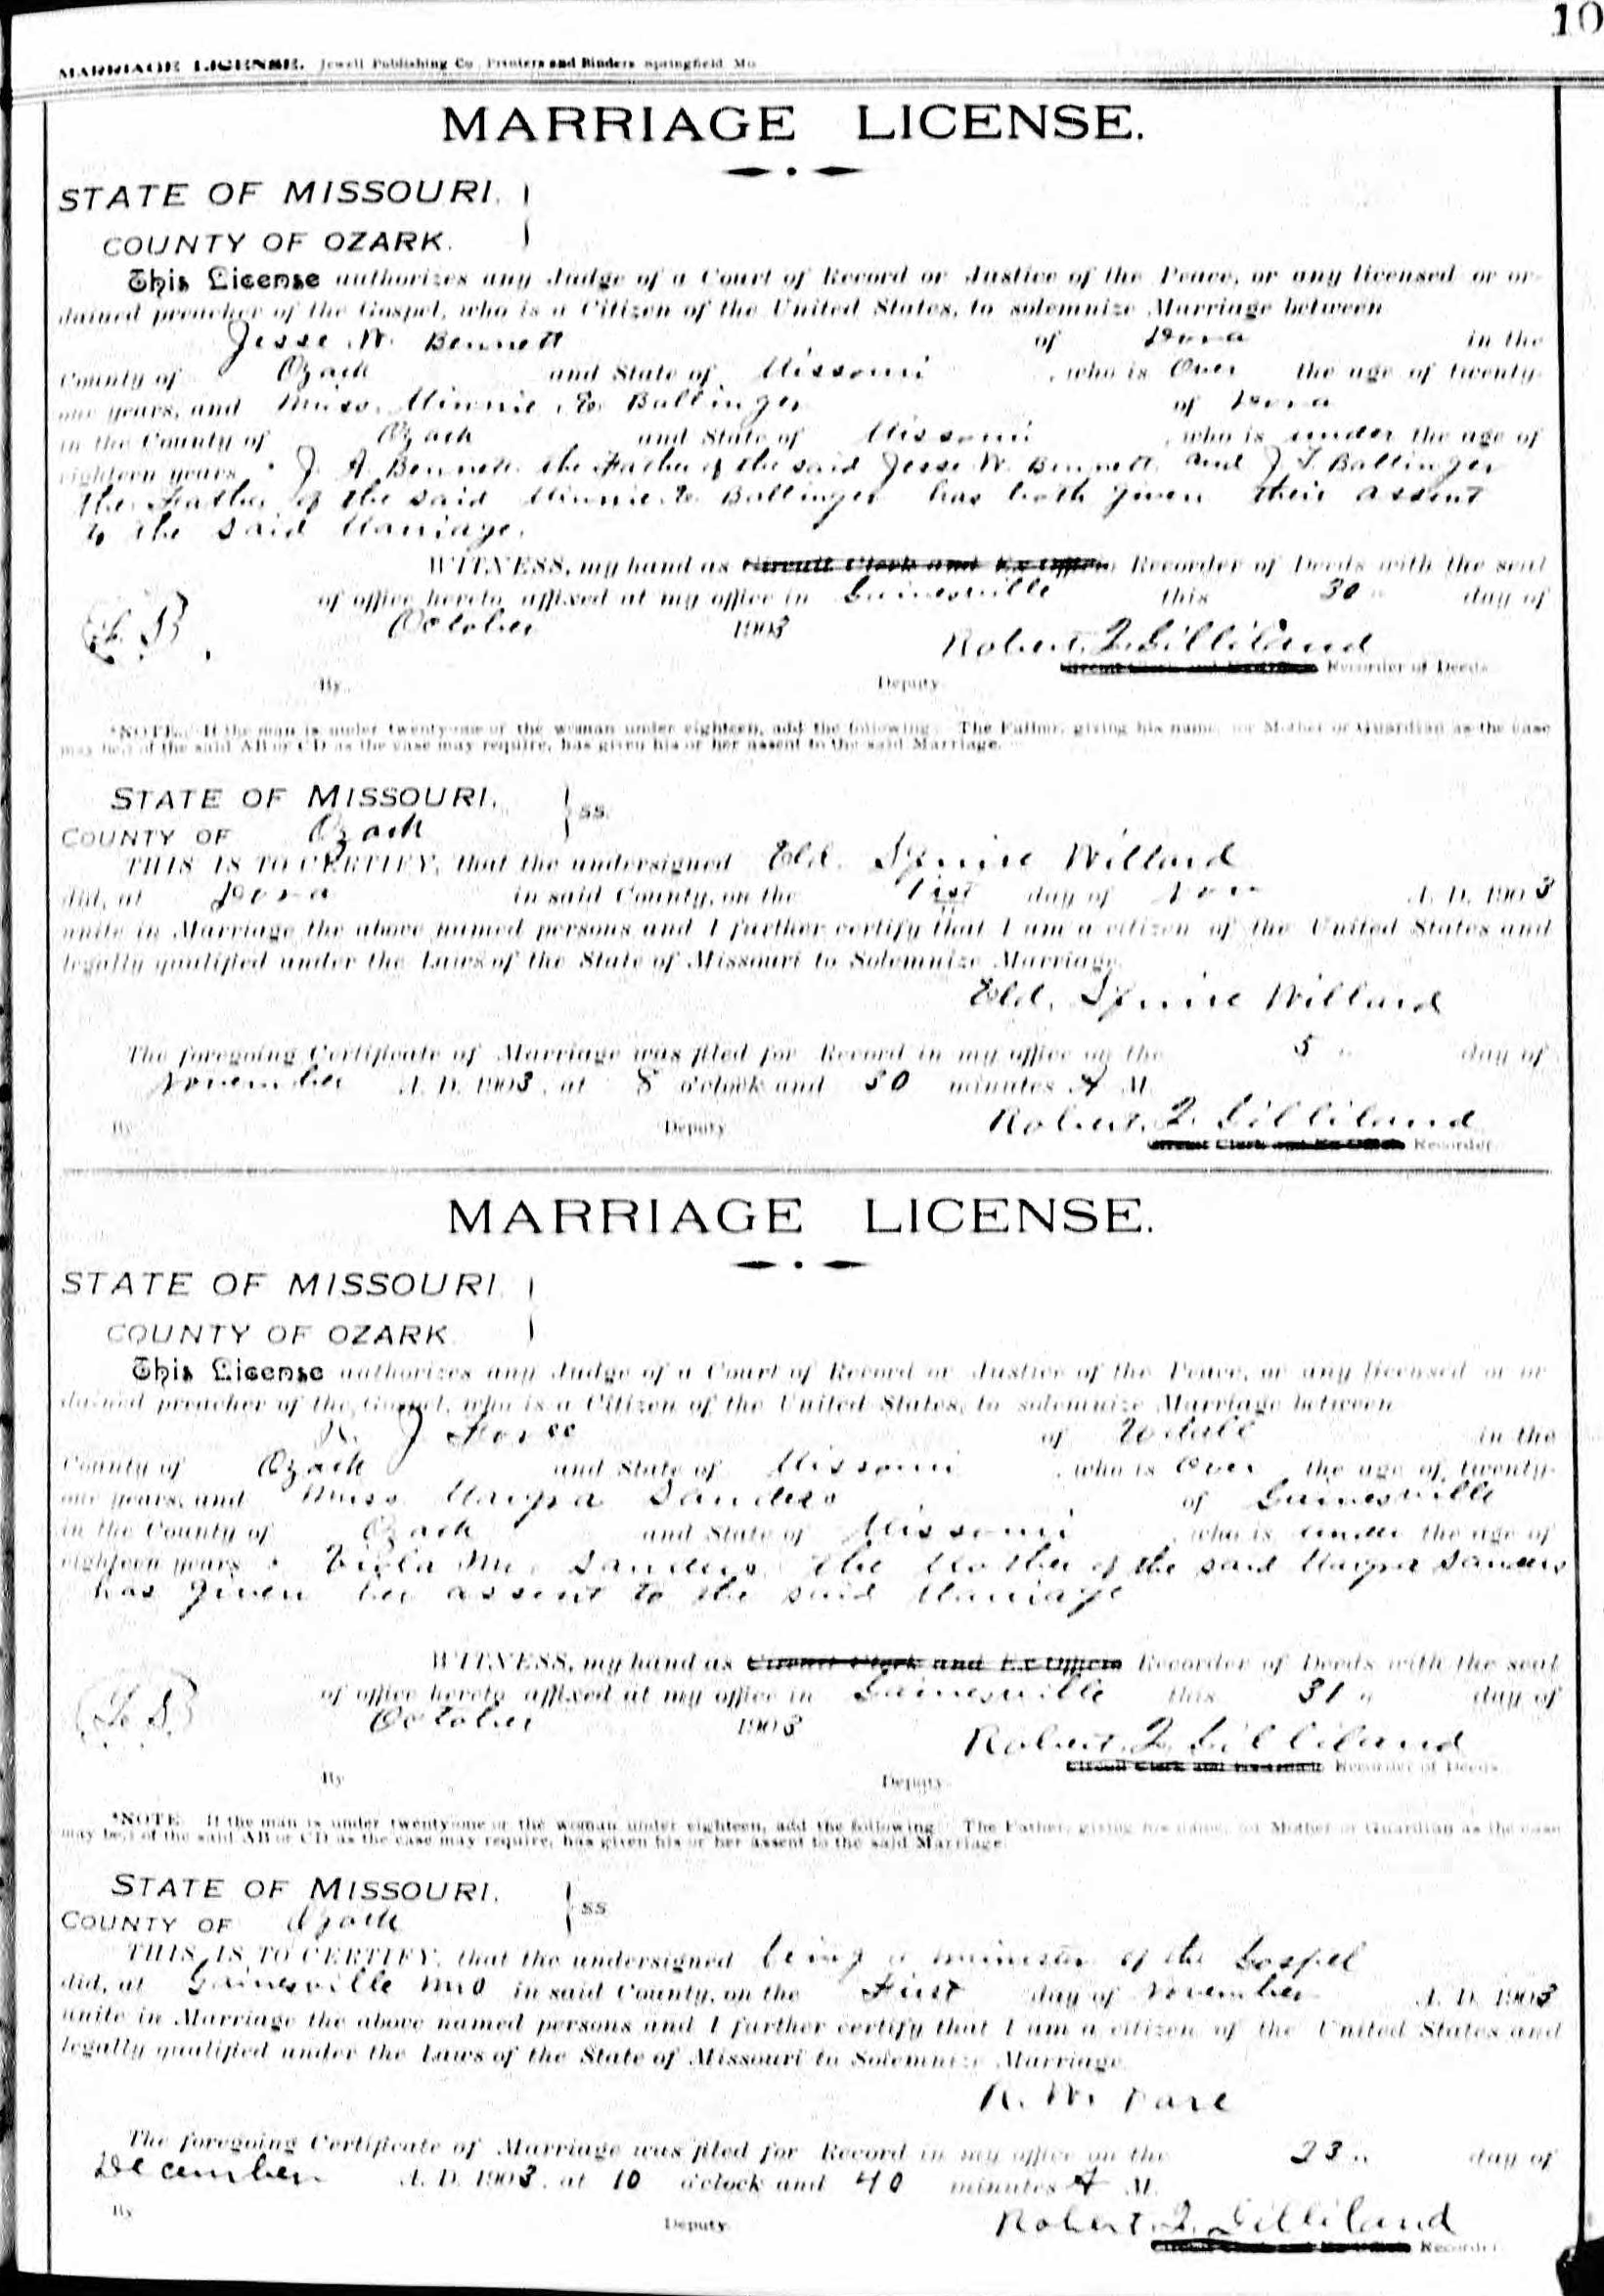 10
MARRIAGE LICENSE. Jewell Publishing Co., Printers and Binders Springfield Mo
MARRIAGE LICENSE.
STATE OF MISSOURI,
COUNTY OF OZARK.
This License authorizes any Judge of a Court of Record or Justice of the Peace, or any licensed or or-
dained preacher of the Gospel, who is a Citizen of the United States, to solemnize Marriage between
Jesse W. Bennett of Dora in the
County of Ozark and State of Missouri, who is Over the age of twenty-
one years, and Miss. Minnie E. Ballinger of Dora
in the County of Ozark and State of Missouri, who is under the age of
eighteen years * J. A. Bennett the Father of the said Jesse W. Bennett and J. T. Ballinger
the Father of the said Minnie E. Ballinger has both given their assent
to the said Marriage.
WITNESS, my hand as Circuit Clerk and Ex Officio Recorder of Deeds with the seal
of office hereto affixed at my office in Gainesville this 30 " day of
October 1903
L. S. Robert. Q. Gilliland
Circuit Clerk and Ex Officio Recorder of Deeds
By Deputy
*NOTE. If the man is under twenty-one or the woman under eighteen, add the following: The Father, giving his name, (or Mother or Guardian as the case
may be,) of the said AB or CD as the case may require, has given his or her assent to the said Marriage.
STATE OF MISSOURI, } ss.
COUNTY OF Ozark
THIS IS TO CERTIFY, that the undersigned Eld. Squire Willard
did, at Dora in said County, on the 1st day of Nov A. D. 1903
unite in Marriage the above named persons and I further certify that I am a citizen of the United States and
legally qualified under the Laws of the State of Missouri to Solemnize Marriage.
Eld. Squire Willard
The foregoing Certificate of Marriage was filed for Record in my office on the 5 " day of
November A. D. 1903, at 8 o'clock and 30 minutes A M.
Robert. Q. Gilliland
By Deputy Circuit Clerk and Ex Officio Recorder.
MARRIAGE LICENSE.
STATE OF MISSOURI,
COUNTY OF OZARK
This License authorizes any Judge of a Court of Record or Justice of the Peace, or any licensed or or-
dained preacher of the Gospel, who is a Citizen of the United States, to solemnize Marriage between
J of in the
County of Ozark and State of Missouri, who is Over the age of twenty-
one years, and Miss Sanders of Gainesville
in the County of Ozark and State of Missouri, who is under the age of
eighteen years * Viola M. Sanders the Mother of the said Sanders
has given her assent to the said Marriage
WITNESS, my hand as Circuit Clerk and Ex Officio Recorder of Deeds with the seal
of office hereto affixed at my office in Gainesville this 31 " day of
October 1903
L. S. Robert. Q. Gilliland
Circuit Clerk and Ex Officio Recorder of Deeds
By Deputy
*NOTE. If the man is under twenty-one or the woman under eighteen, add the following: The Father, giving his name, (or Mother or Guardian as the case
may be,) of the said AB or CD as the case may require, has given his or her assent to the said Marriage.
STATE OF MISSOURI, } ss
COUNTY OF Ozark
THIS IS TO CERTIFY, that the undersigned being a minister of the Gospel
did, at Gainesville Mo in said County, on the First day of November A. D. 1903
unite in Marriage the above named persons and I further certify that I am a citizen of the United States and
legally qualified under the Laws of the State of Missouri to Solemnize Marriage.
The foregoing Certificate of Marriage was filed for Record in my office on the 23 " day of
December A. D. 1903, at 10 o'clock and 40 minutes A M.
By Robert. Q. Gilliland
Deputy. Circuit Clerk and Ex Officio Recorder